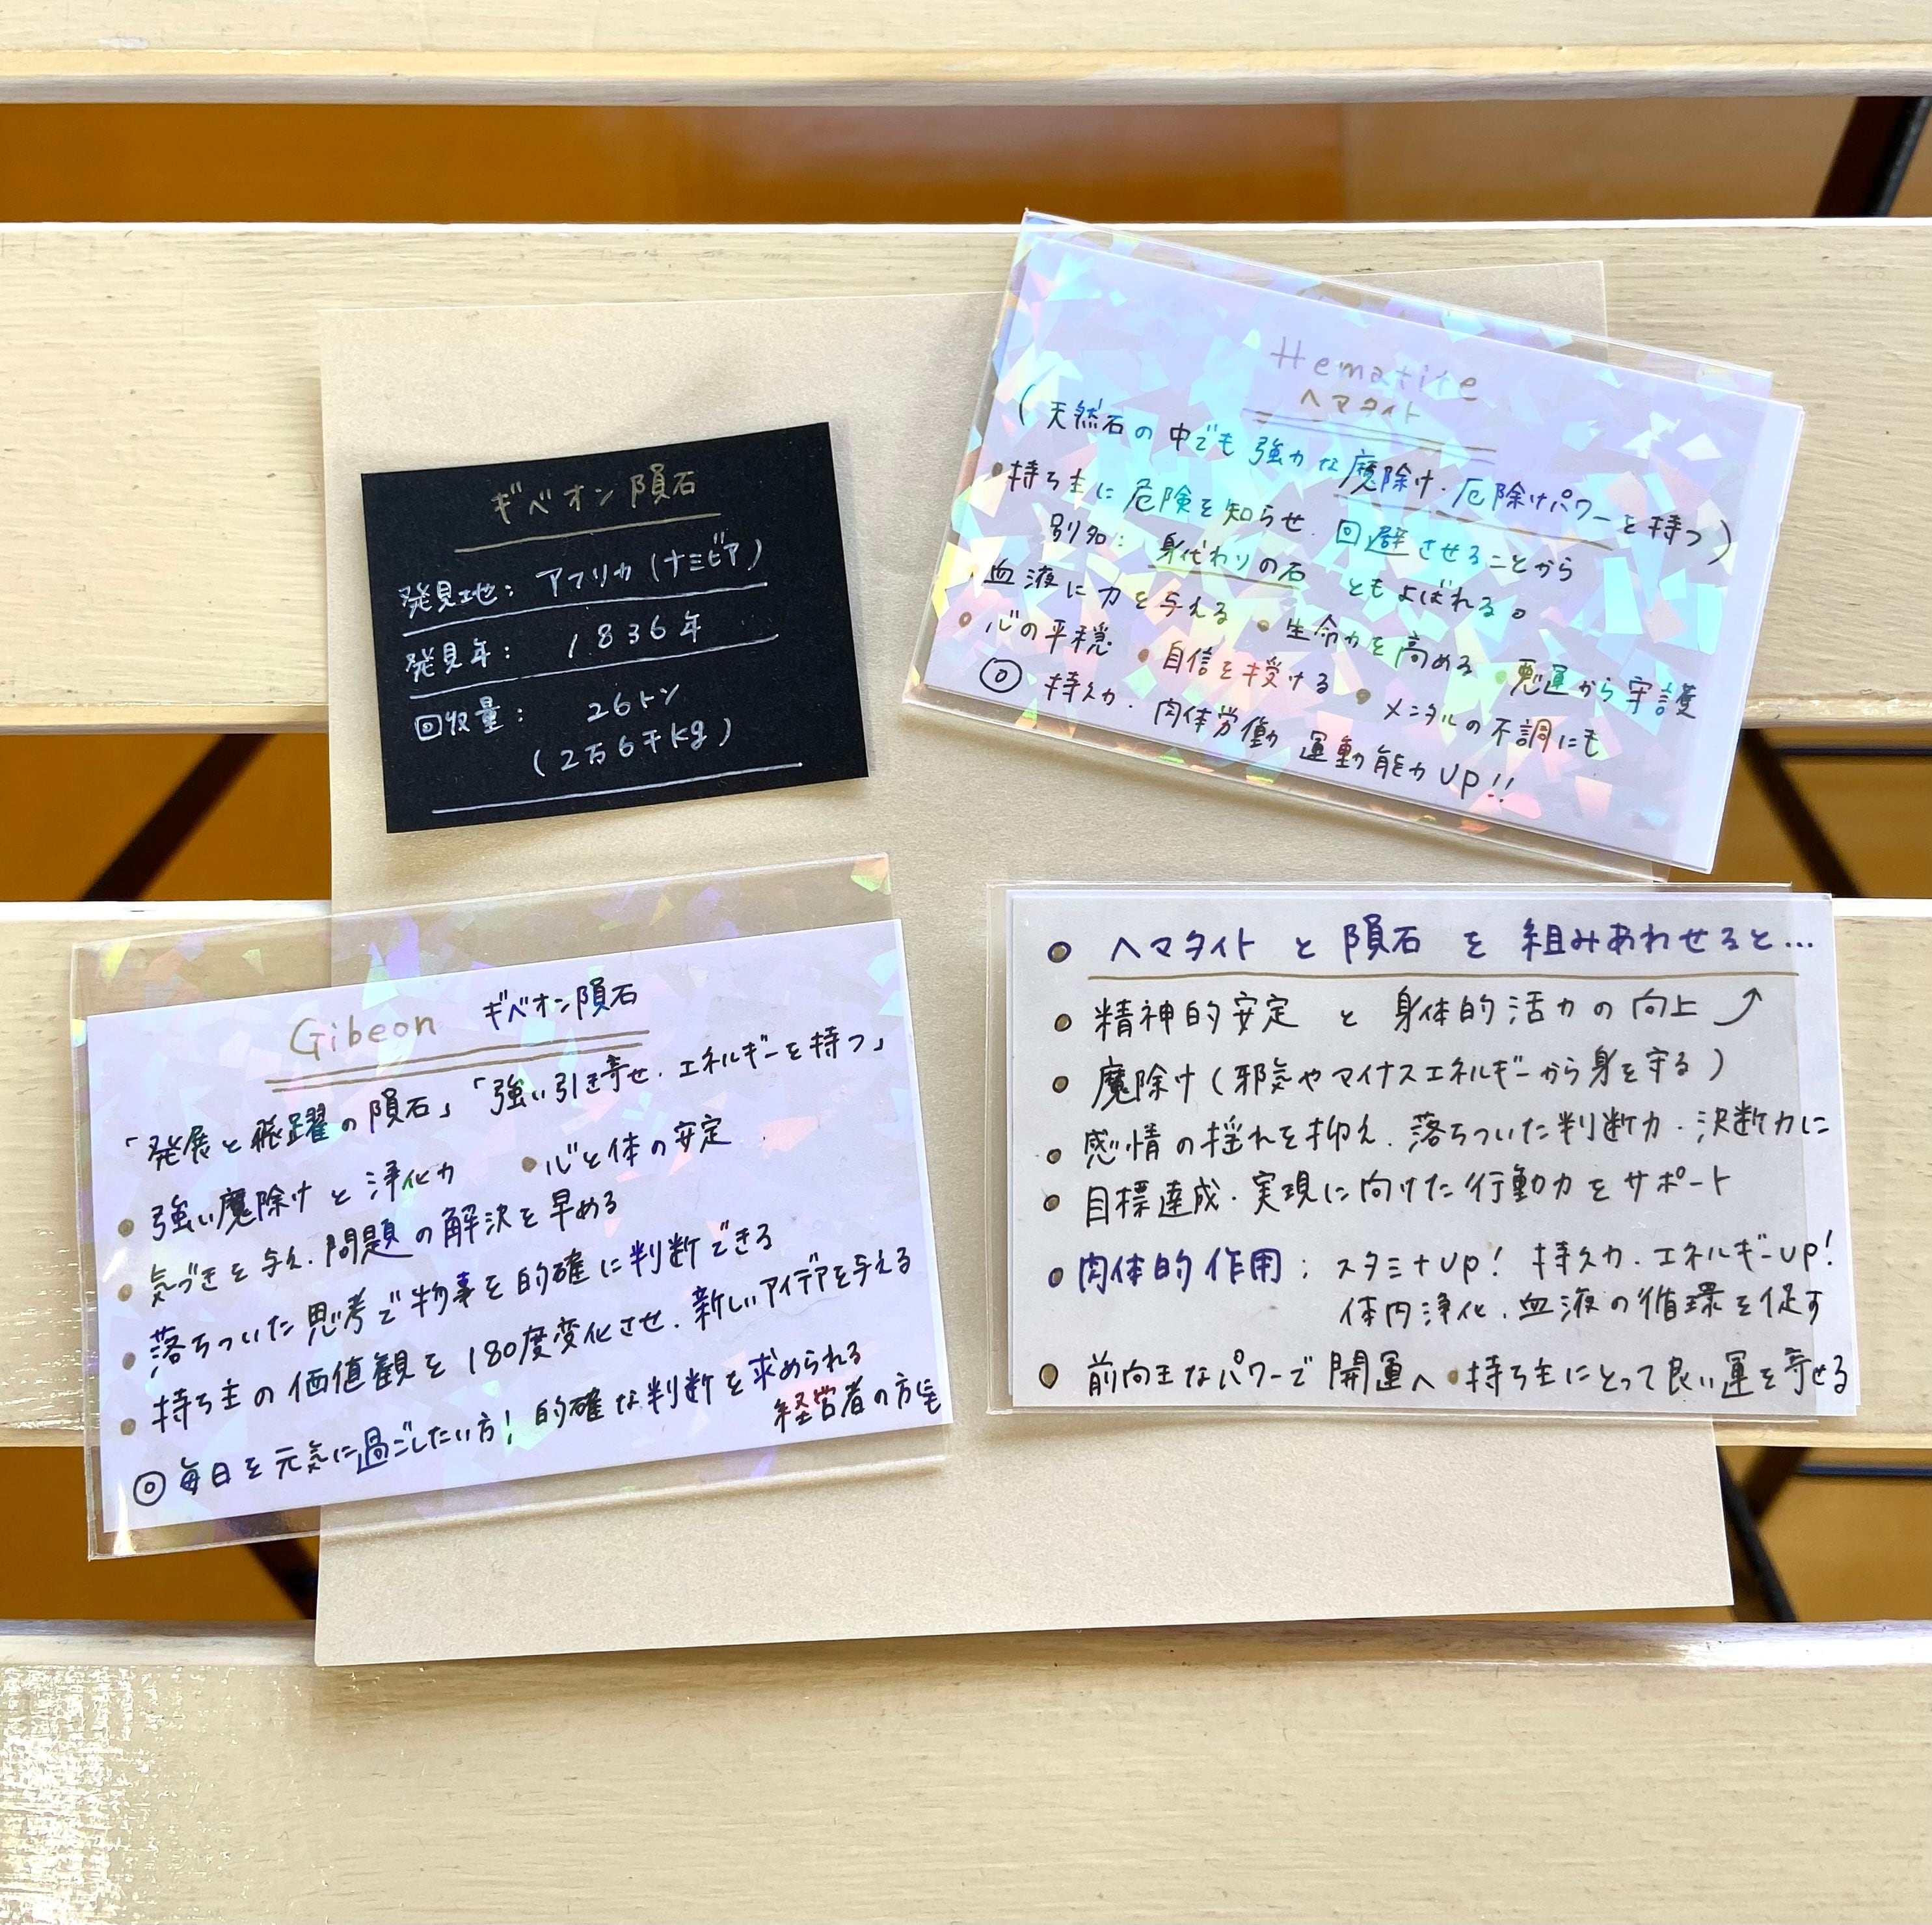 ギベオン隕石
発見地: アフリカ(ナミビア)
発見年: 1836年
回収量: 26トン
(2万6千kg)
Hematite
ヘマタイト
(天然石の中でも強力な魔除け・厄除けパワーを持つ)
•持ち主に危険を知らせ、回避させることから
別名: 身代わりの石 ともよばれる。
•血液に力を与える •生命力を高める •悪運から守護
•心の平穏 •自信を授ける •メンタルの不調にも
◎ 持久力・肉体労働 運動能力UP!!
Gibeon ギベオン隕石
「発展と飛躍の隕石」「強い引き寄せ、エネルギーを持つ」
•強い魔除けと浄化力 •心と体の安定
•気づきを与え、問題の解決を早める
•落ちついた思考で物事を的確に判断できる
•持ち主の価値観を180度変化させ、新しいアイデアを与える
◎毎日を元気に過ごしたい方! 的確な判断を求められる
経営者の方にも
• ヘマタイト と 隕石 を 組みあわせると…
• 精神的安定 と 身体的活力の向上⤴
• 魔除け(邪気やマイナスエネルギーから身を守る)
• 感情の揺れを抑え、落ちついた判断力・決断力に
• 目標達成・実現に向けた行動力をサポート
• 肉体的作用: スタミナUP! 持久力、エネルギーUP!
体内浄化、血液の循環を促す
• 前向きなパワーで開運へ •持ち主にとって良い運を寄せる